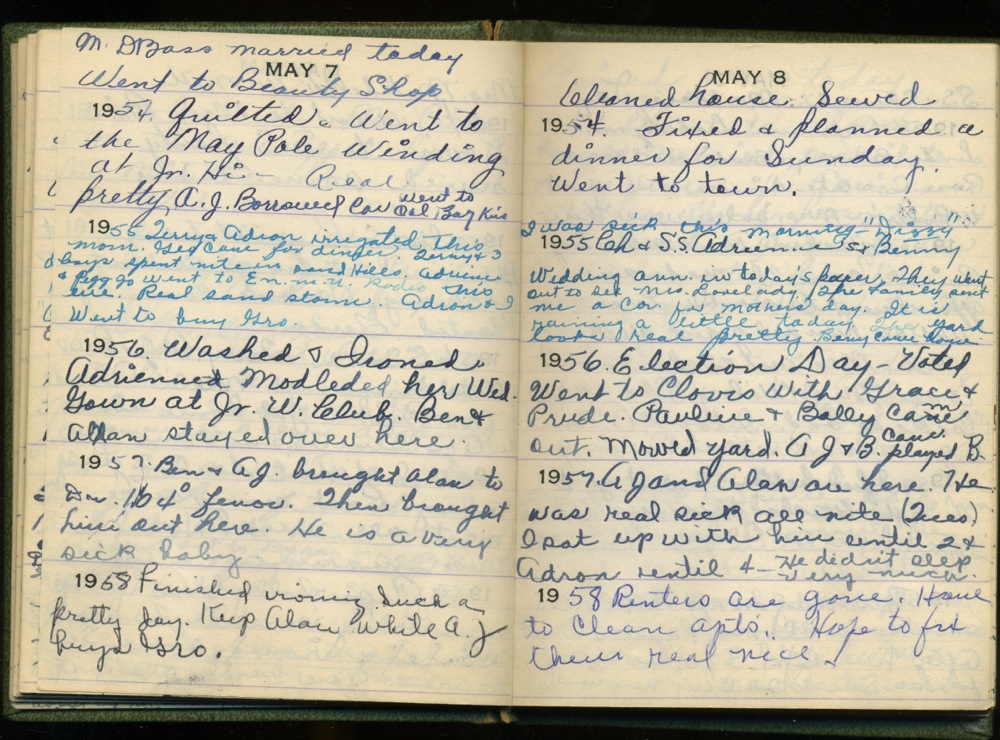 M. D Bass married today
MAY 7
Went to Beauty Shop
1954. Quilted. Went to
the May Pole Winding
at Jr. Hi - Real
pretty A. J. Borrowed Car Went to
1955 Terry & Adron irrigated this
morn. Ide came for dinner. & 3
boys spent nite in Sand Hills.
& Peggy Jo went to E.n.m.u. Rodeo this
eve. Real sand storm. Adron & I
Went to buy Gro.
1956. Washed & Ironed.
Adrienne Modleded her Wed.
Gown at Jr. W. Club. Ben &
Alan stayed over here.
1957. Ben & A.J. brought Alan to
Dr. 104° fever. Then brought
him out here. He is a very
sick baby.
1958 Finished ironing. Such a
pretty day. Keep Alan while A. J
buys Gro.
MAY 8
Cleaned house. Sewed
1954. Fixed & planned a
dinner for Sunday.
Went to town.
I was sick this morning - "Dizzy"
1955 Ch & S.S. Adrienne & Benny
Wedding ann. in today's paper. They went
out to see Mrs. Lovelady. The family sent
me a Cor. for Mothers day. It is
raining a little today. The yard
looks real pretty. Benny came home.
1956. Election Day - Voted
Went to Clovis With Grace &
Prude. Pauline & Bobby came
out. Mowed yard. A J & B. came played B.
1957. A J and Alan are here. He
was real sick all nite
I sat up with him until 2 &
Adron until 4 - He didn't sleep
very much.
1958 Renters are gone. Have
to clean apts. Hope to fix
them real nice.